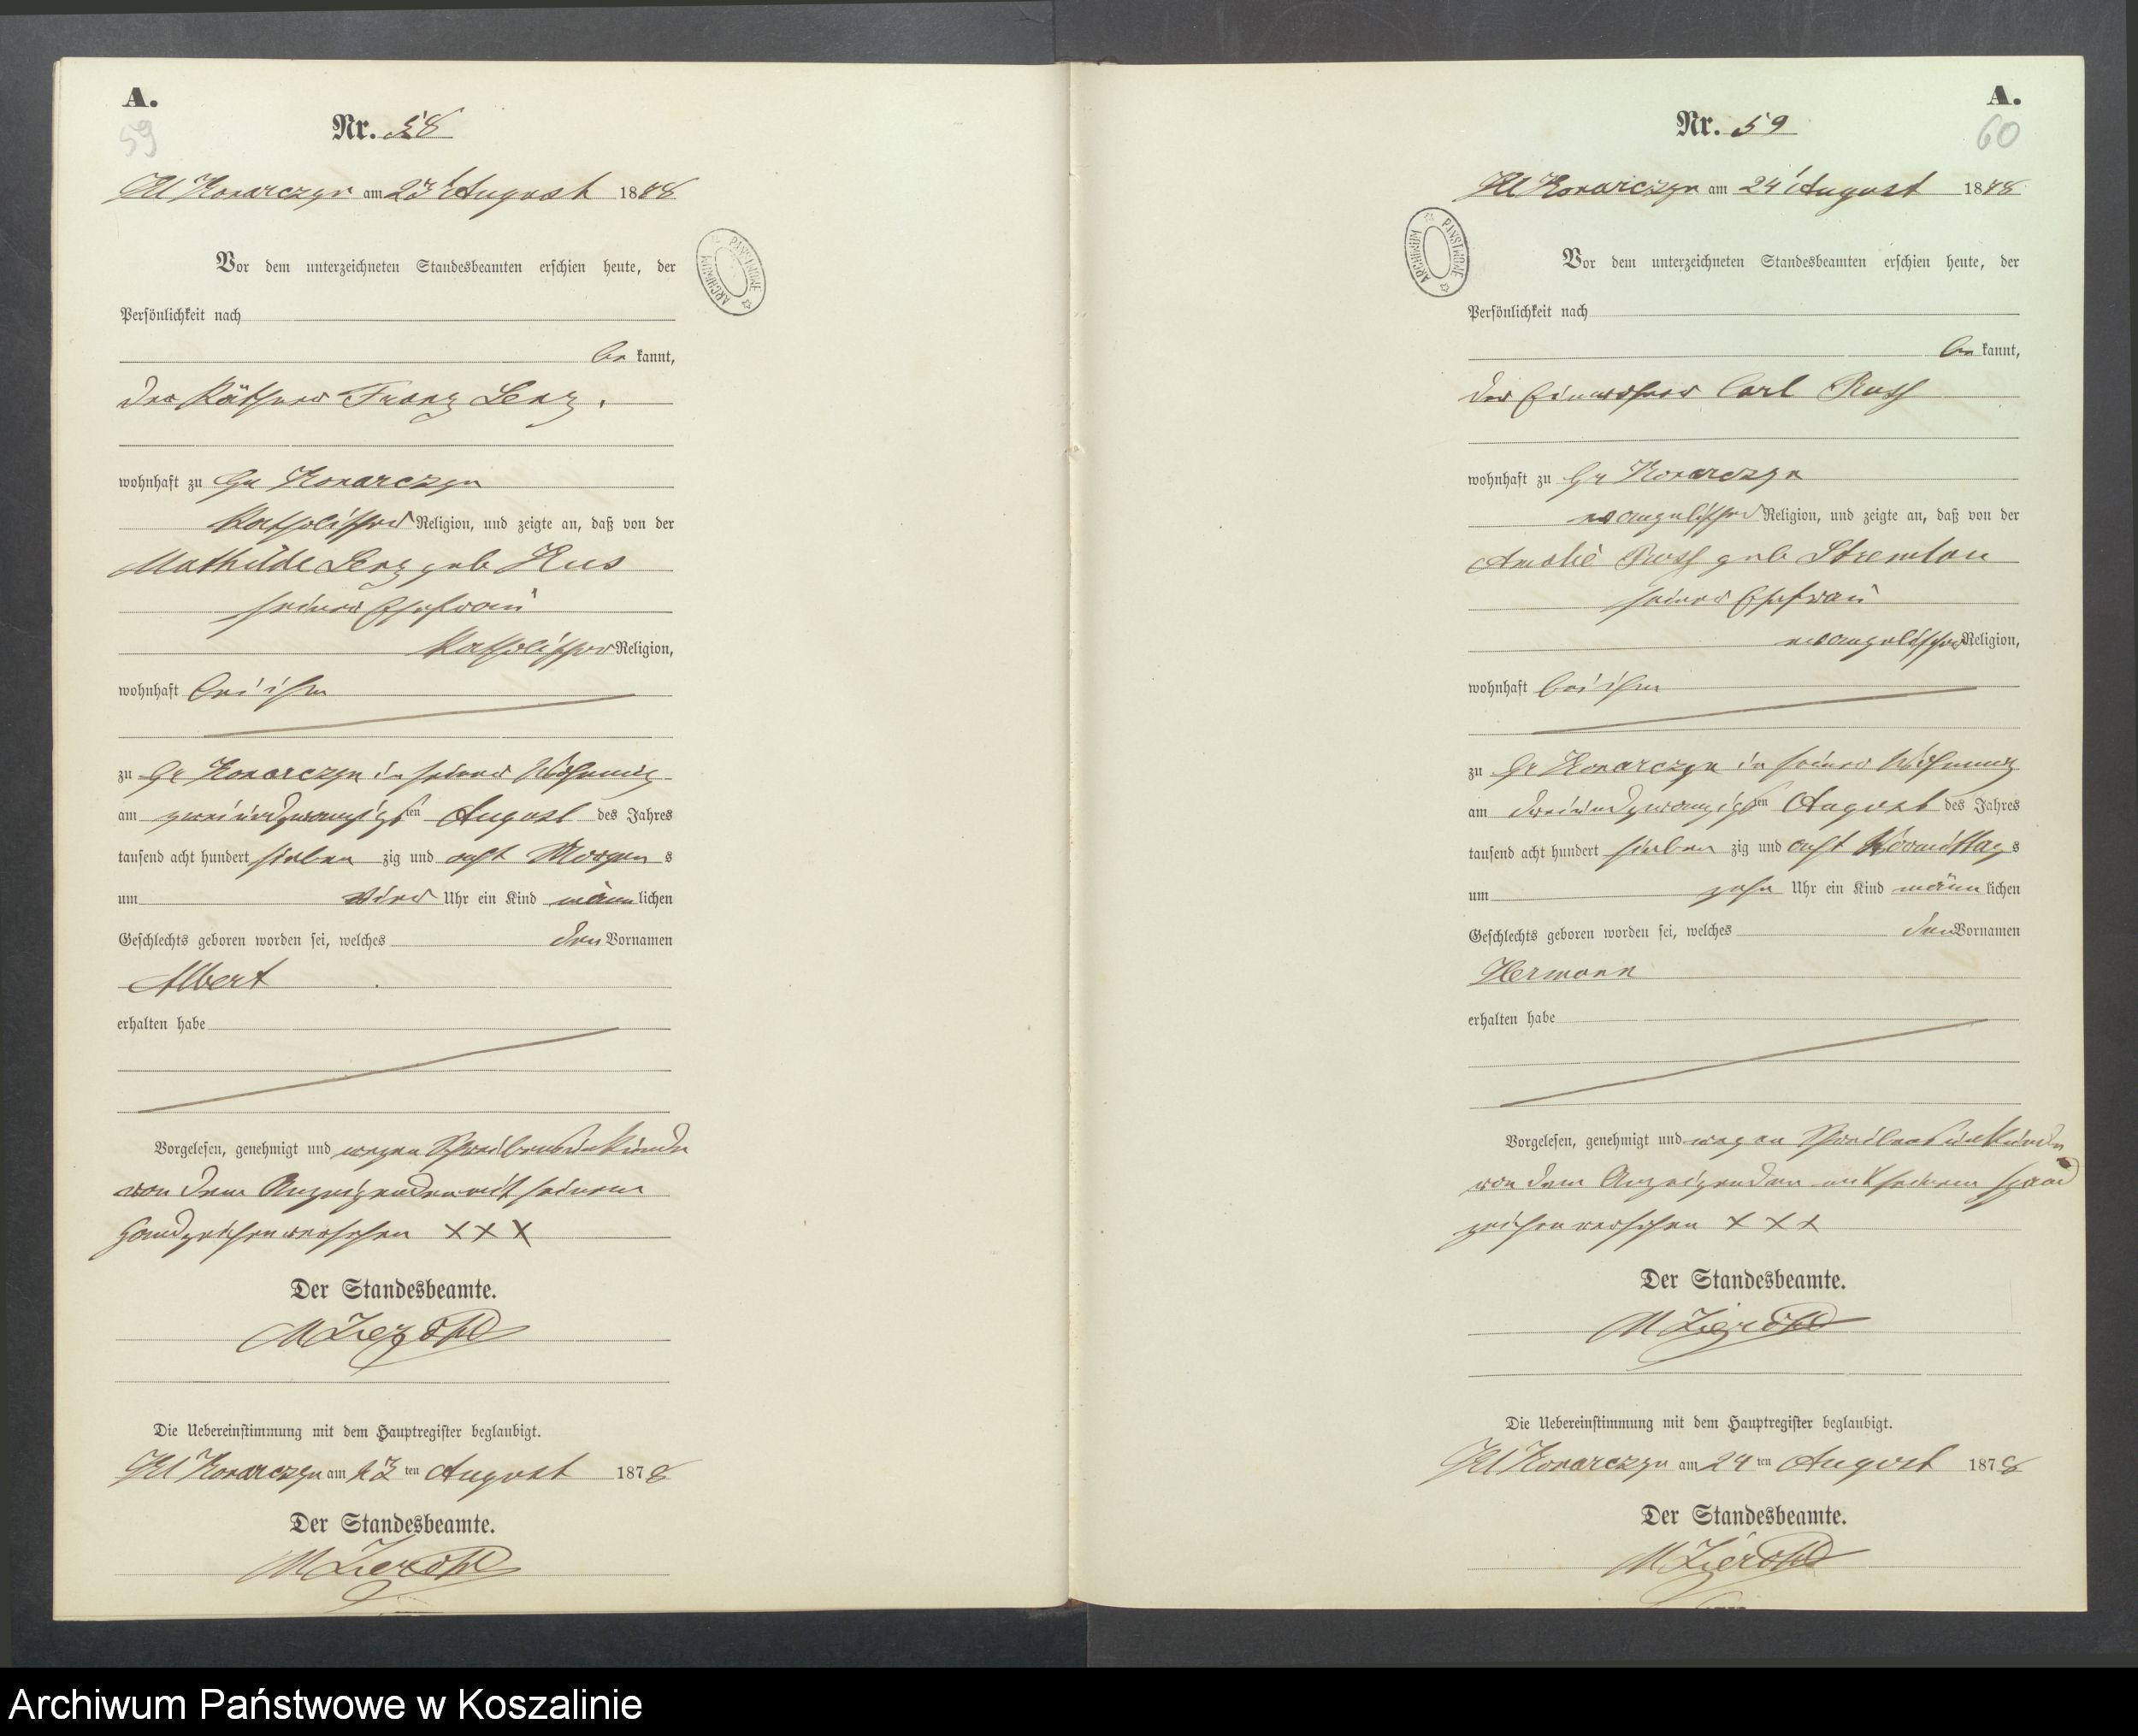 A.
59
Nr. 58
Kl Konarczyn am 23 August 1878
Vor dem unterzeichneten Standesbeamten erschien heute, der
Persönlichkeit nach
be kannt,
der Käthner Franz Lenz.
wohnhaft zu Gr Konarczyn
katholischer Religion, und zeigte an, daß von der
Mathilde Lenz geb Hus
seiner Ehefrau
katholischer Religion,
wohnhaft bei ihm
zu Gr Konarczyn in seiner Wohnung
am zweiundzwanzigsten August des Jahres
tausend acht hundert sieben zig und acht Morgen s
um vier Uhr ein Kind männ lichen
Geschlechts geboren worden sei, welches den Vornamen
Albert
erhalten habe
Vorgelesen, genehmigt und wegen Schreibensunkunde
von dem Anzeigenden mit seinem
Handzeichen versehen XXX
Der Standesbeamte.
Die Uebereinstimmung mit dem Hauptregister beglaubigt.
Kl Konarczyn am 23 ten August 1878
Der Standesbeamte.
A.
60
Nr. 59
Kl Konarczyn am 24 August 1878
ARCHIWUM PAŃSTWOWE
Vor dem unterzeichneten Standesbeamten erschien heute, der
Persönlichkeit nach
be kannt,
der Einwohner Carl Roß
wohnhaft zu Gr Konarczyn
evangelischer Religion, und zeigte an, daß von der
Amalie Roß geb Stremlau
seiner Ehefrau
evangelischer Religion,
wohnhaft bei ihm
zu Gr Konarczyn in seiner Wohnung
am dreiundzwanzigsten August des Jahres
tausend acht hundert sieben zig und acht Vormittag s
um zehn Uhr ein Kind männ lichen
Geschlechts geboren worden sei, welches den Vornamen
Hermann
erhalten habe
Vorgelesen, genehmigt und wegen Schreibensunkunde
von dem Anzeigenden mit seinem Hand
zeichen versehen XXX
Der Standesbeamte.
Die Uebereinstimmung mit dem Hauptregister beglaubigt.
Kl Konarczyn am 24 ten August 1878
Der Standesbeamte.
Archiwum Państwowe w Koszalinie